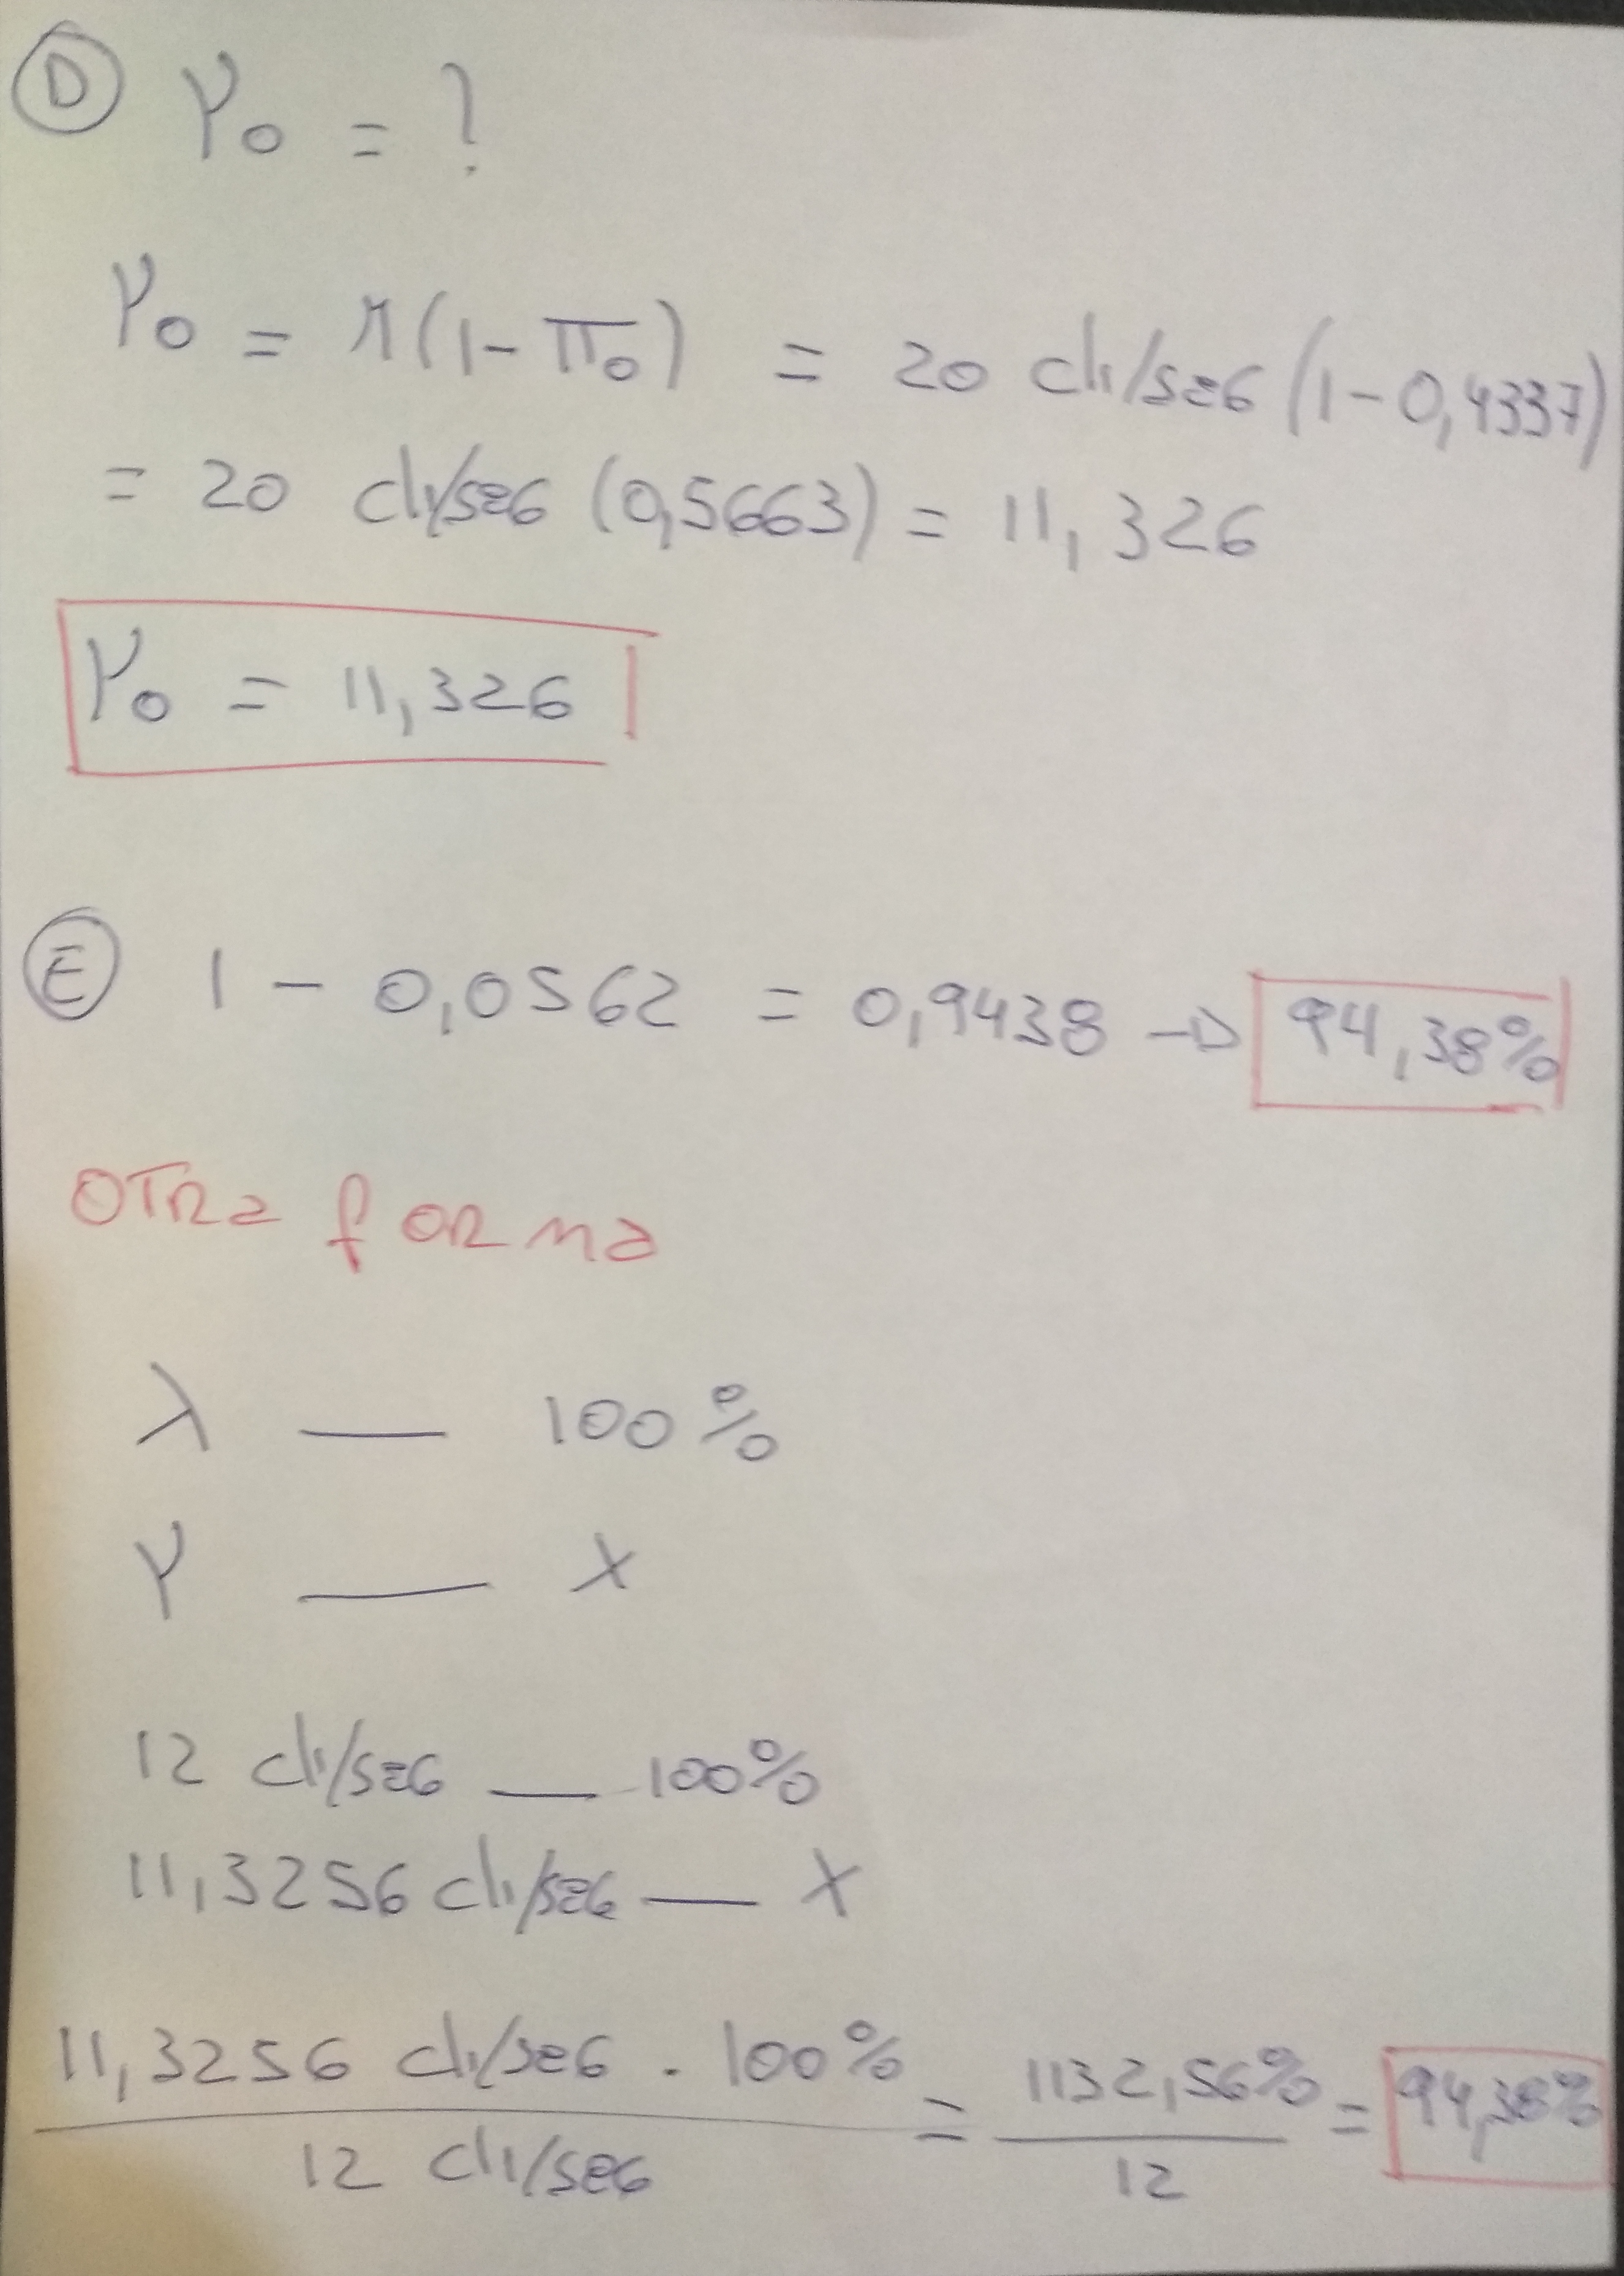 D γ₀ = ?
γ₀ = μ(1 - π₀) = 20 cli/seg (1 - 0,4337)
= 20 cli/seg (0,5663) = 11,326
γ₀ = 11,326
E 1 - 0,0562 = 0,9438 → 94,38%
OTRa fORma
λ — 100%
γ — x
12 cli/seg — 100%
11,3256 cli/seg — x
11,3256 cli/seg . 100% = 1132,56% = 94,38%
12 cli/seg 12